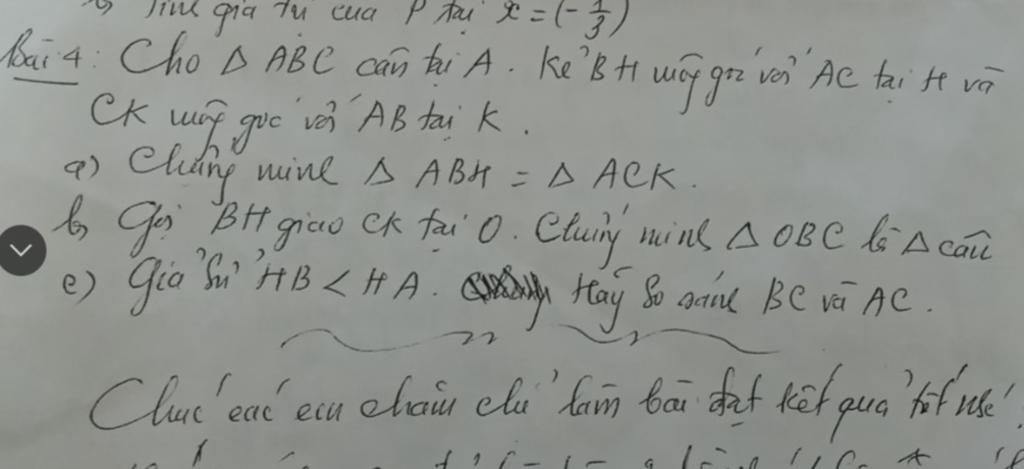 b) Tính giá trị của P tại x = (- 1/3)
Bài 4: Cho Δ ABC cân tại A. Kẻ BH vuông góc với AC tại H và
CK vuông góc với AB tại K.
a) Chứng minh Δ ABH = Δ ACK.
b) Gọi BH giao CK tại O. Chứng minh Δ OBC là Δ cân
c) Giả sử HB < HA. Hãy so sánh BC và AC.
Chúc các em chăm chỉ làm bài đạt kết quả tốt nhé!